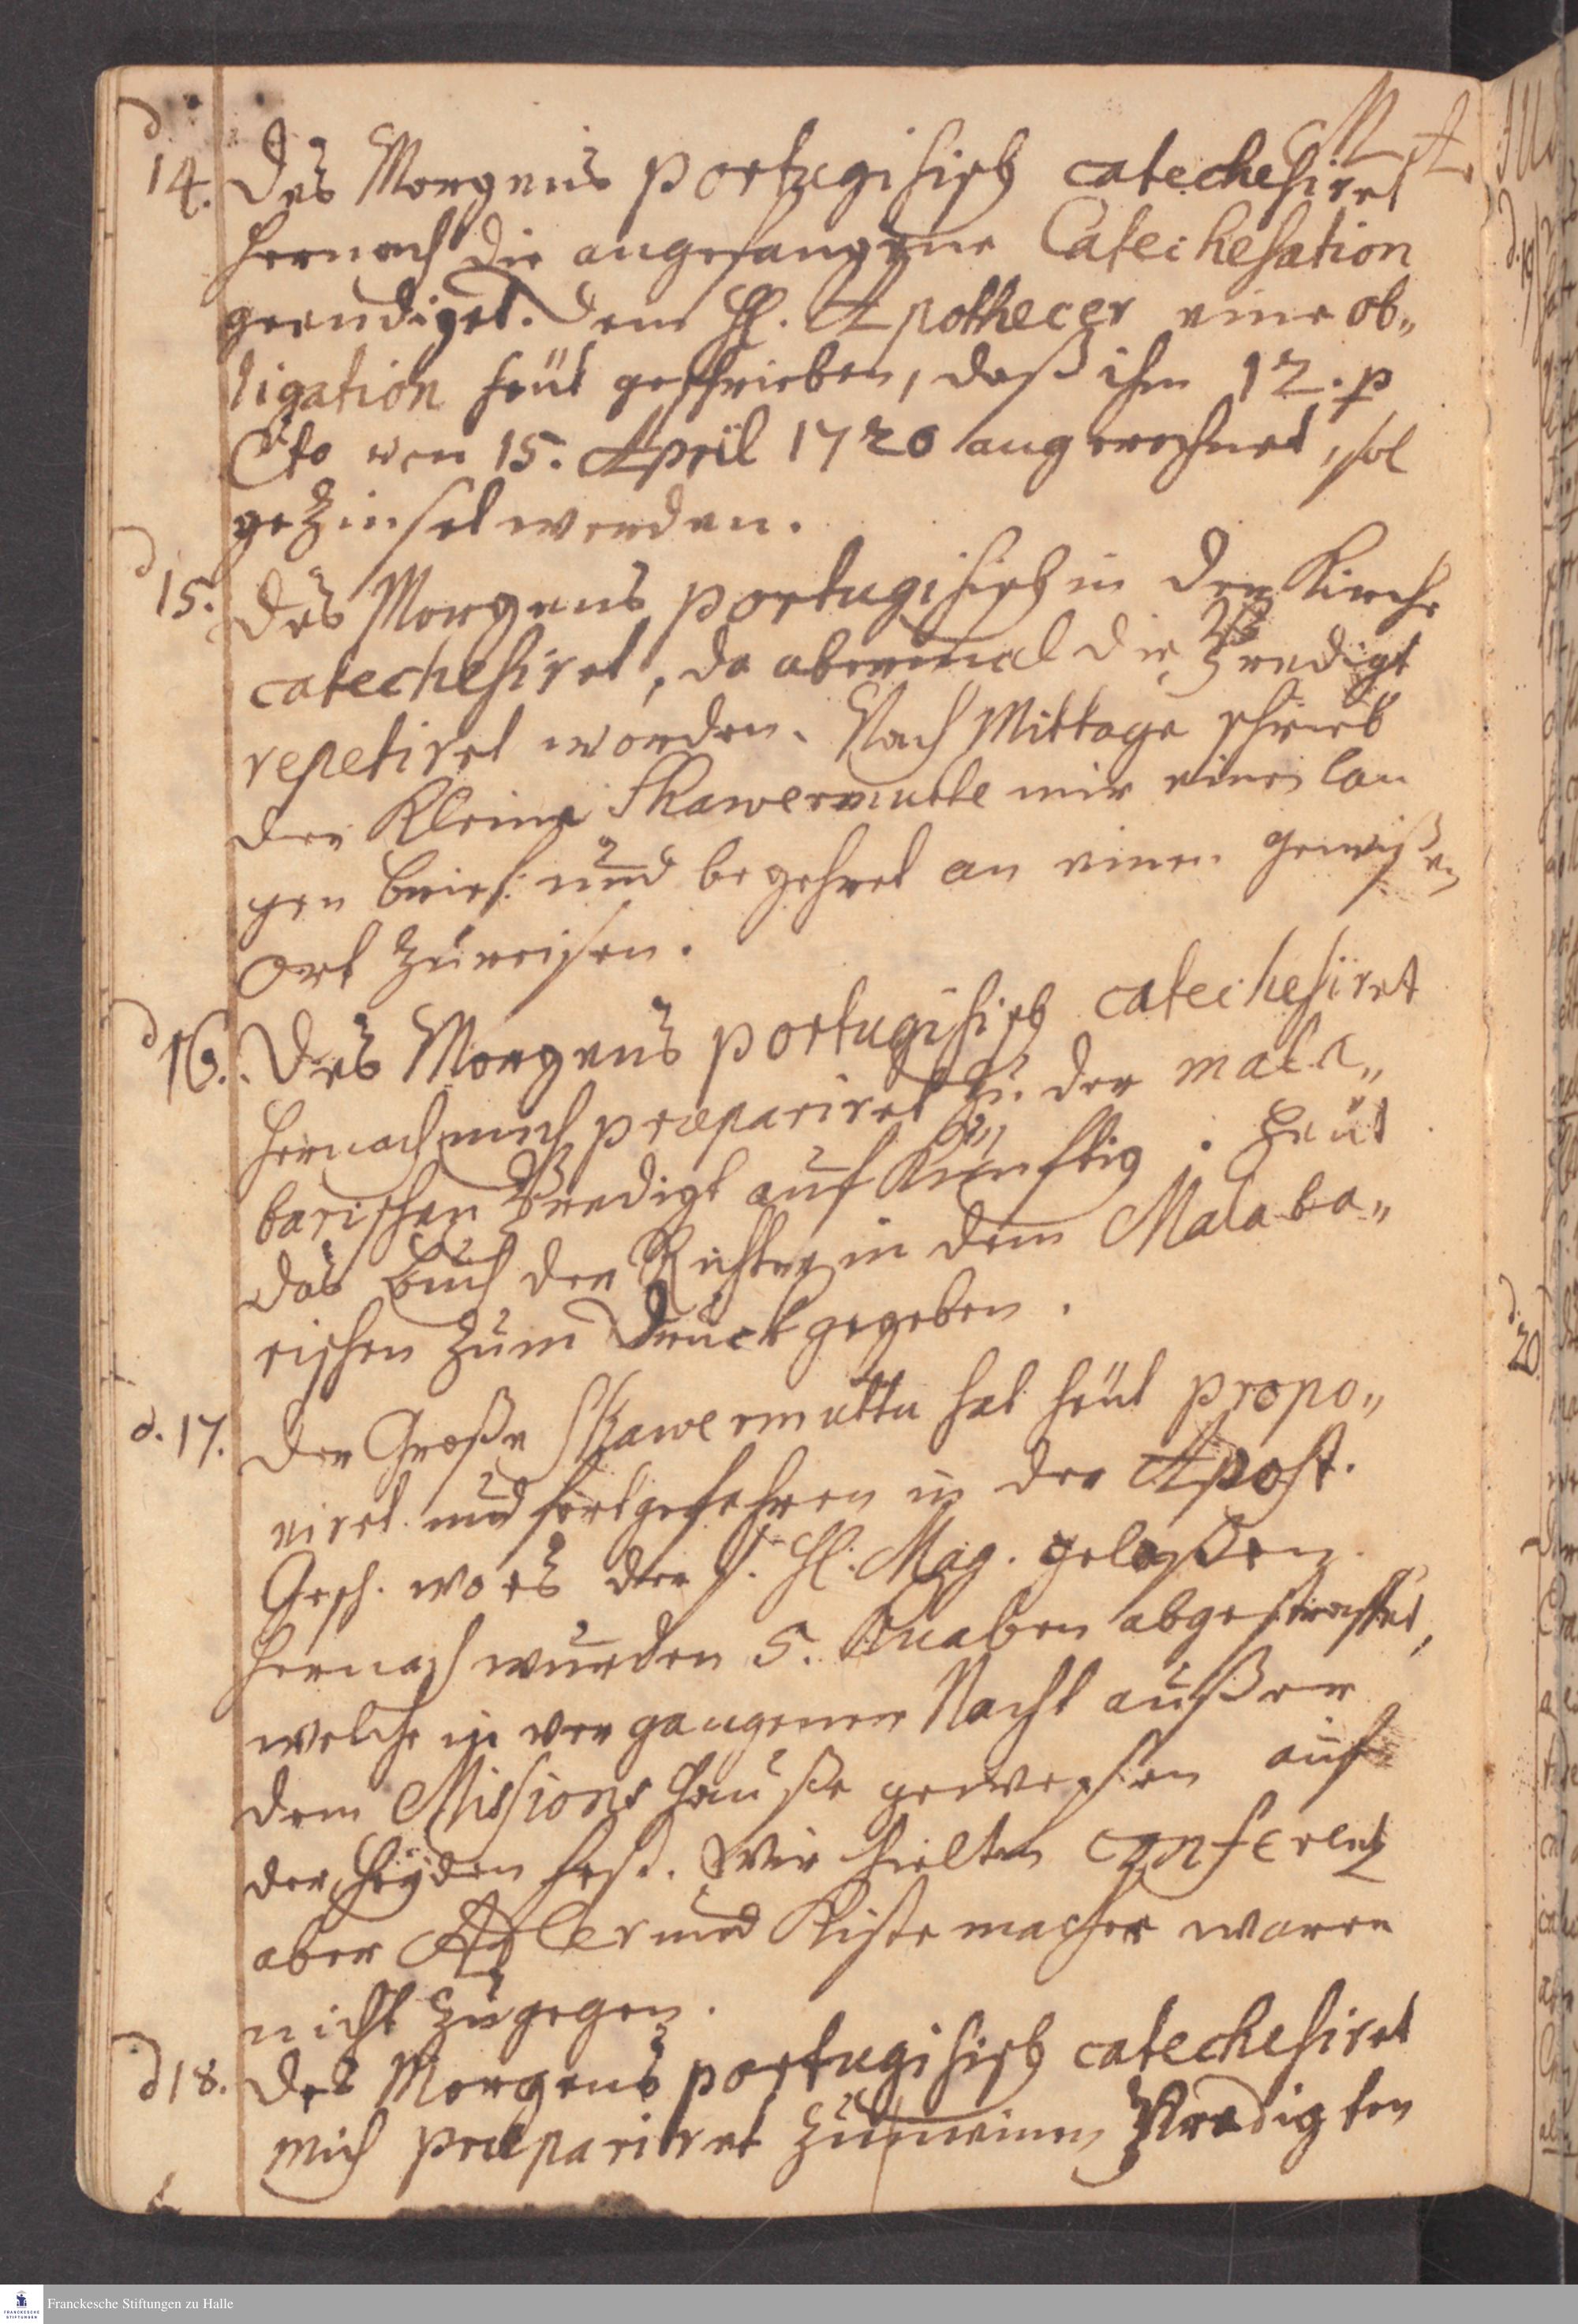 d 14. Des Morgens portugisisch catechesiret
hernach die angefangene Catechesation
geendiget. Dem H. Apothecer eine ob„
ligation heüt geschrieben, daß ihm 12. p
Cto von 15. April 1720 angerechnet, sol
gezinset werden.
d 15. Des Morgens portugisisch in der Kirche
catechesiret, da abermal die Predigt
repetiret worden. Nach Mittage schrieb
der Kleine Shawermutte mir einen lan
gen brief und begehret an einen gewißen
Ort zu reisen.
d 16. Des Morgens portugisisch catechesiret
hernach mich præpariret zu der mala„
barischen Predigt auf Künfftig. Heüt
das Buch der Richter in dem Malaba„
rischen zum Druck gegeben.
d. 17. Der Große Shawermuttu hat heüt propo„
niret und fortgefahren in der Apost.
Gesch. wo es der s. H. Mag. gelaßen.
Hernach wurden 5. Knaben abgestraffet,
welche in vergangener Nacht außer
dem Missions Hauße gewesen auf
der Heyden fest. Wir hielten conferentz
aber Adler und Kistemacher waren
nicht zugegen.
d 18. Des Morgens portugisisch catechesiret
mich præpariret zu meinen Predigten
Franckesche Stiftungen zu Halle